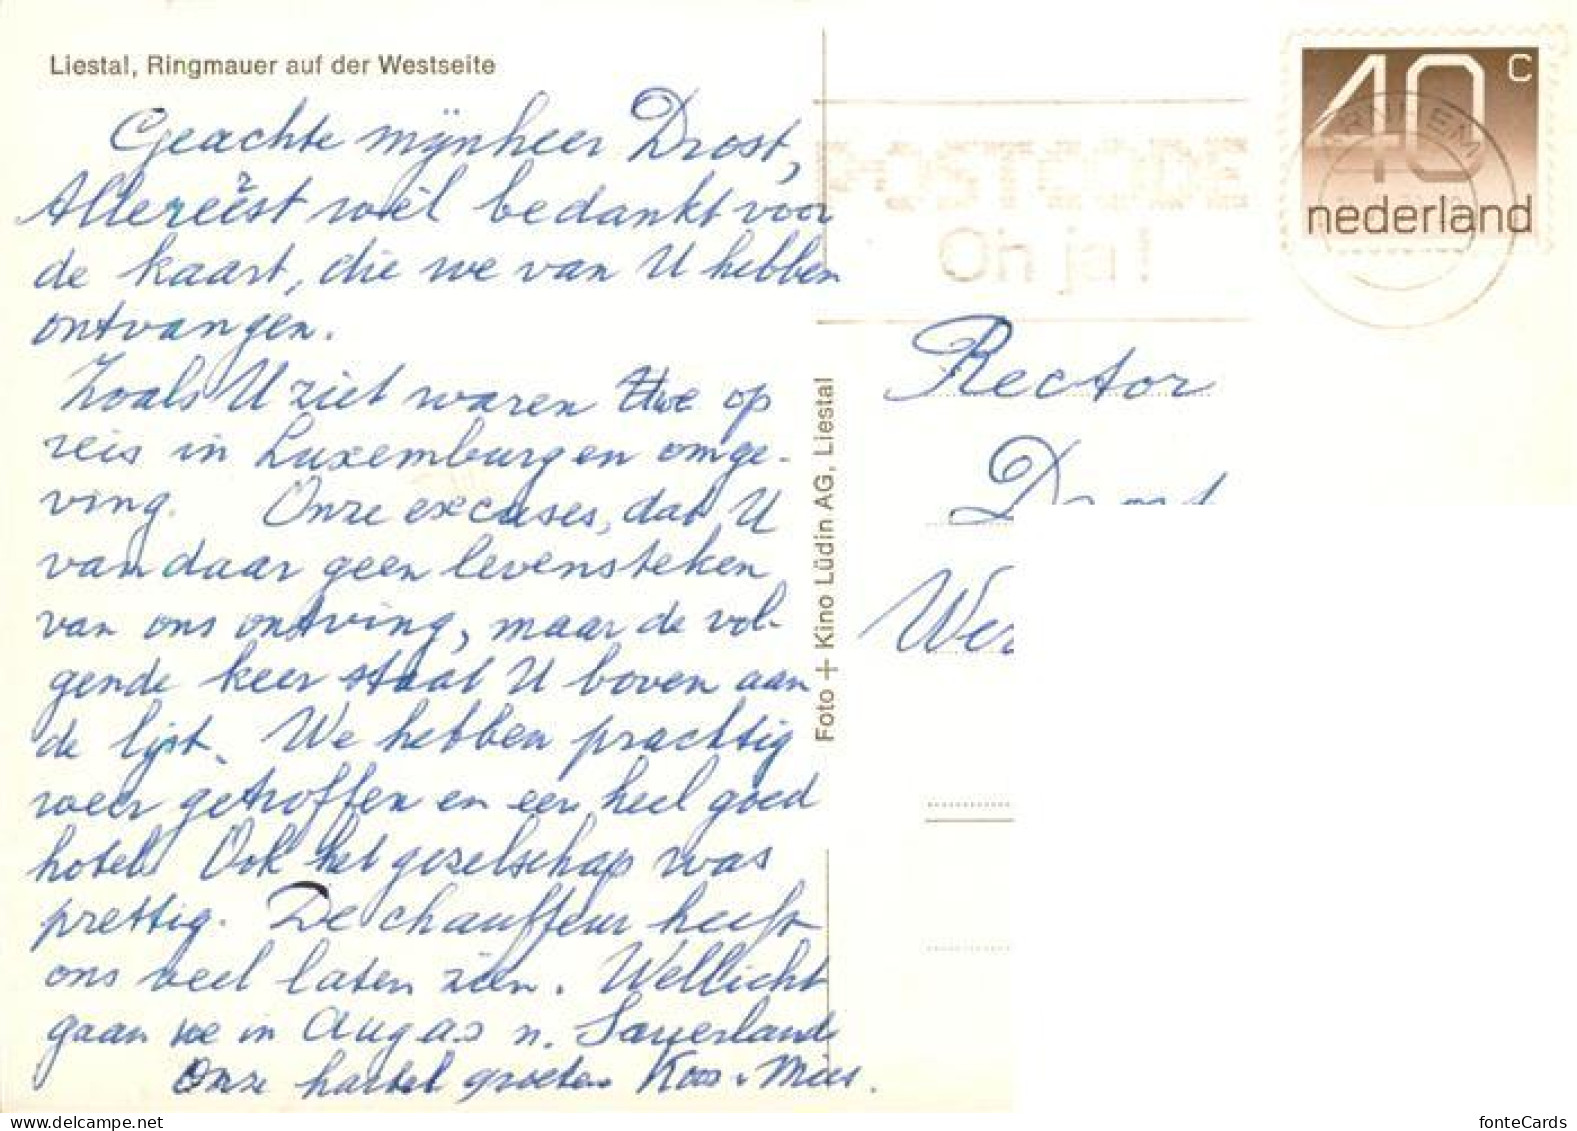 Liestal, Ringmauer auf der Westseite
Geachte mijnheer Drost,
Allereerst wel bedankt voor
de kaart, die we van U hebben
ontvangen.
Zoals U ziet waren we op
reis in Luxemburg en omge-
ving. Onze excuses, dat U
van daar geen levensteken
van ons ontving, maar de vol-
gende keer staat U boven aan
de lijst. We hebben prachtig
weer getroffen en een heel goed
hotel. Ook het gezelschap was
prettig. De chauffeur heeft
ons veel laten zien. Wellicht
gaan we in Aug a.s n. Sauerland
Onze hartel groeten Koos & Mies.
Foto + Kino Lüdin AG, Liestal
POSTCODE
Oh ja!
ARNHEM
40 c
nederland
Rector
Drost
Wer
fonteCards